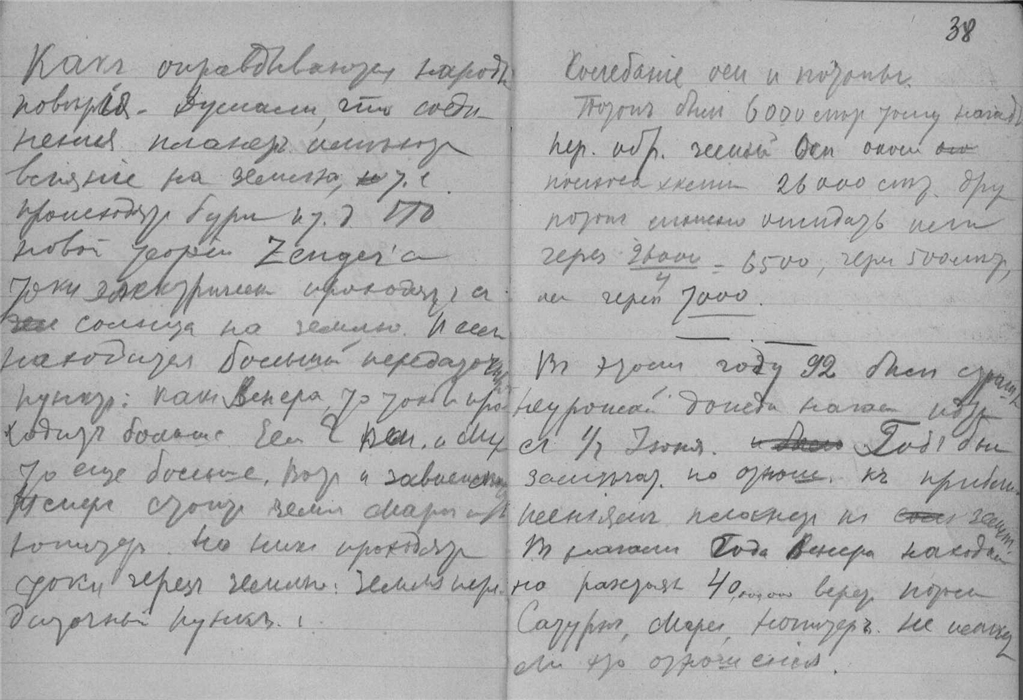 Какъ оправдываются народн
повѣрья. Думали, что соеди-
ненія планетъ имѣютъ
вліяніе на землю, т. е.
происходятъ бури и т. д. По
новой теоріи Zenger'а
токи электрическ проходятъ съ
солнца на землю. Если
находится большій передаточный
пунктъ: какъ Венера, то токи про
ходитъ больше. Если 2 Вен. и Мер
то еще больше. Вотъ и зависимость
Теперь стоитъ земля Марсъ и
Юпитеръ. На нихъ проходятъ
токи черезъ землю: земля пере-
даточный пунктъ.
38
Колебаніе оси и потопы.
Потопъ былъ 6000 лѣтъ тому назадъ
пер. обр. земной оси около
полюса 26000 лѣт. Дру
потопъ можно ожидать
черезъ 26000/4 = 6500, через 500 лѣтъ,
или через 7000.
Въ этомъ году 92 былъ страшн
неурожай дожди начали идти
съ 1/2 Іюня. Годъ был
замѣчат. по отнош. къ прибли-
женіямъ планетъ къ земл.
Въ началѣ Года Венера находил
на разстоян 40,000,000 верст потомъ
Сатурнъ, Марсъ, Юпитеръ. Не
ли это отношенія.